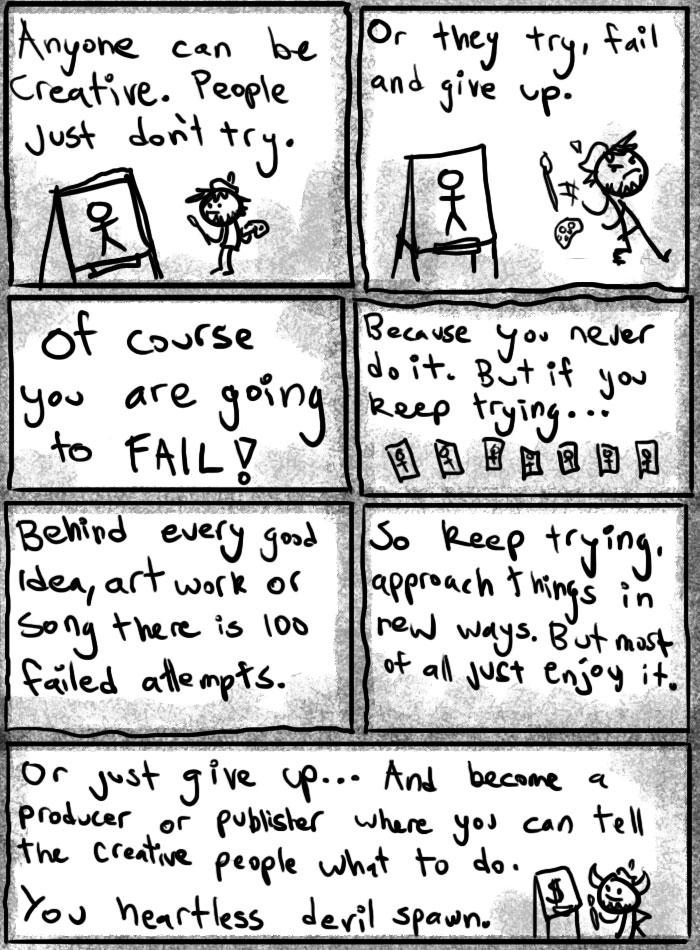 Anyone can be
Creative. People
Just don't try.
Or they try, fail
and give up.
Of course
you are going
to FAIL!
Because you never
do it. But if you
keep trying...
Behind every good
idea, art work or
song there is 100
failed attempts.
So keep trying,
approach things in
new ways. But most
of all just enjoy it.
Or just give up... And become a
producer or publisher where you can tell
the creative people what to do.
You heartless devil spawn.
$